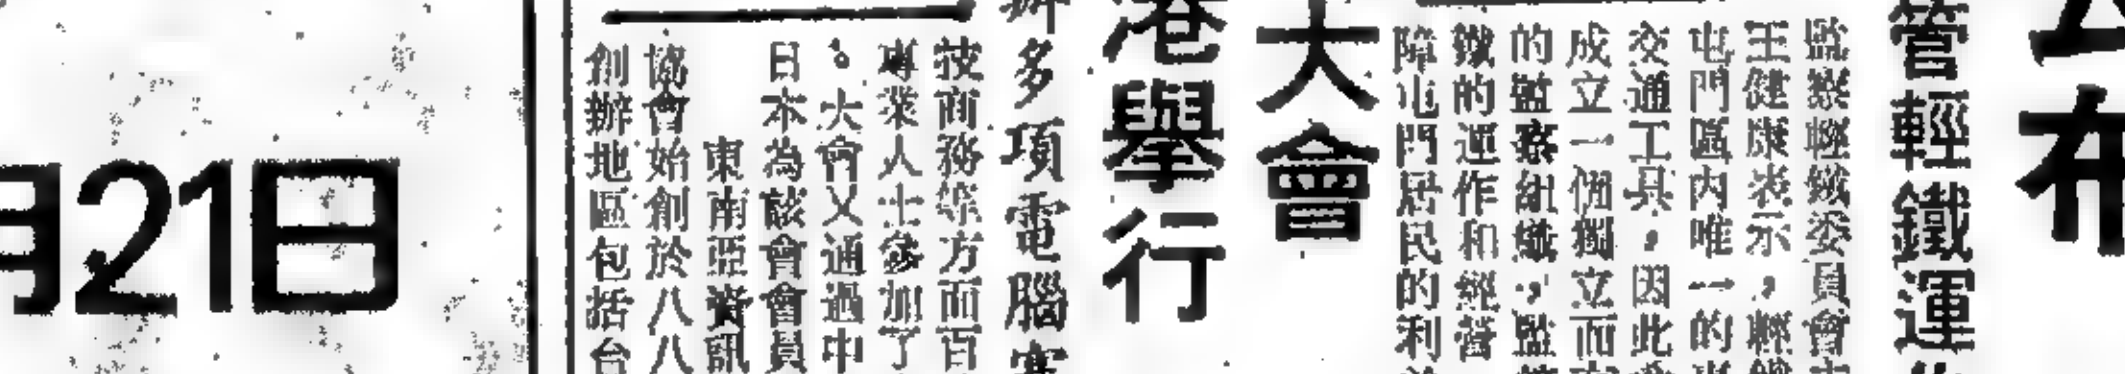 布
管輕鐵運
監察輕鐵委員會
王健康表示，輕鐵
屯門區內唯一的
交通工具，因此
成立一個獨立而
的監察組織，監
鐵的運作和經營
障屯門居民的利
大會
港舉行
辦多項電腦
技商務等方面百
專業人士參加了
。大會又通過中
日本為該會會員
東南亞資訊
協會始創於八八
創辦地區包括台
月21日